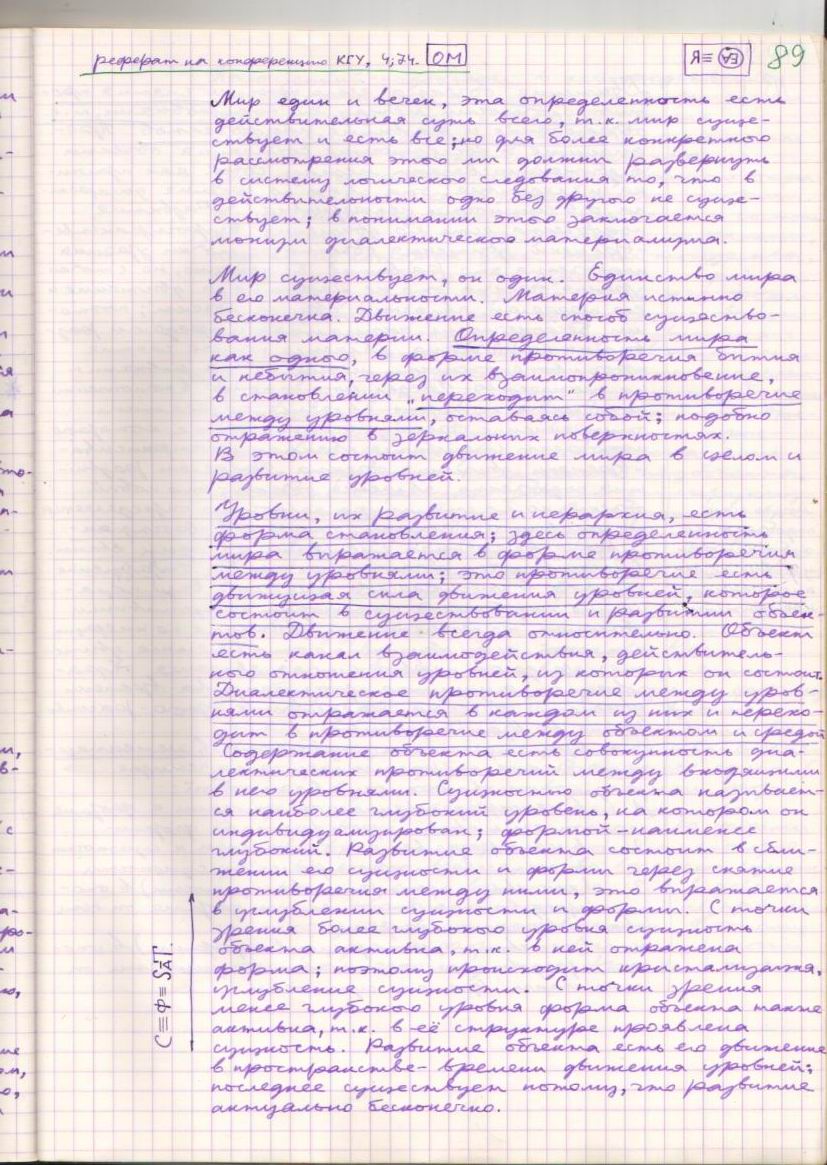 реферат на конференцию КГУ, 4,74. ОМ
Я≡ 89
Мир един и вечен, эта определенность есть
действительная суть всего, т.к. мир суще-
ствует и есть все; но для более конкретного
рассмотрения этого мы должны развернуть
в систему логического следования то, что в
действительности одно без другого не суще-
ствует; в понимании этого заключается
монизм диалектического материализма.
Мир существует, он один. Единство мира
в его материальности. Материя истинно
бесконечна. Движение есть способ существо-
вания материи. Определенность мира
как одного, в форме противоречия бытия
и небытия, через их взаимопроникновение,
в становлении „переходит" в противоречие
между уровнями, оставаясь собой; подобно
отражению в зеркальных поверхностях.
В этом состоит движение мира в целом и
развитие уровней.
Уровни, их развитие и иерархия, есть
форма становления; здесь определенность
мира выражается в форме противоречия
между уровнями; это противоречие есть
движущая сила движения уровней, которое
состоит в существовании и развитии объек-
тов. Движение всегда относительно. Объект
есть канал взаимодействия, действитель-
ного отношения уровней, из которых он состоит.
Диалектическое противоречие между уров-
нями отражается в каждом из них и перехо-
дит в противоречие между объектом и средой
Содержание объекта есть совокупность диа-
лектических противоречий между входящими
в него уровнями. Сущностью объекта называет-
ся наиболее глубокий уровень, на котором он
индивидуализирован; формой – наименее
глубокий. Развитие объекта состоит в сбли-
жении его сущности и формы через снятие
противоречия между ними, это выражается
в углублении сущности и формы. С точки
зрения более глубокого уровня сущность
объекта активна, т.к. в ней отражена
форма; поэтому происходит кристализация,
углубление сущности. С точки зрения
менее глубокого уровня форма объекта также
активна, т.к. в её структуре проявлена
сущность. Развитие объекта есть его движение
в пространстве-времени движения уровней;
последнее существует потому, что развитие
актуально бесконечно.
С≡Ф≡